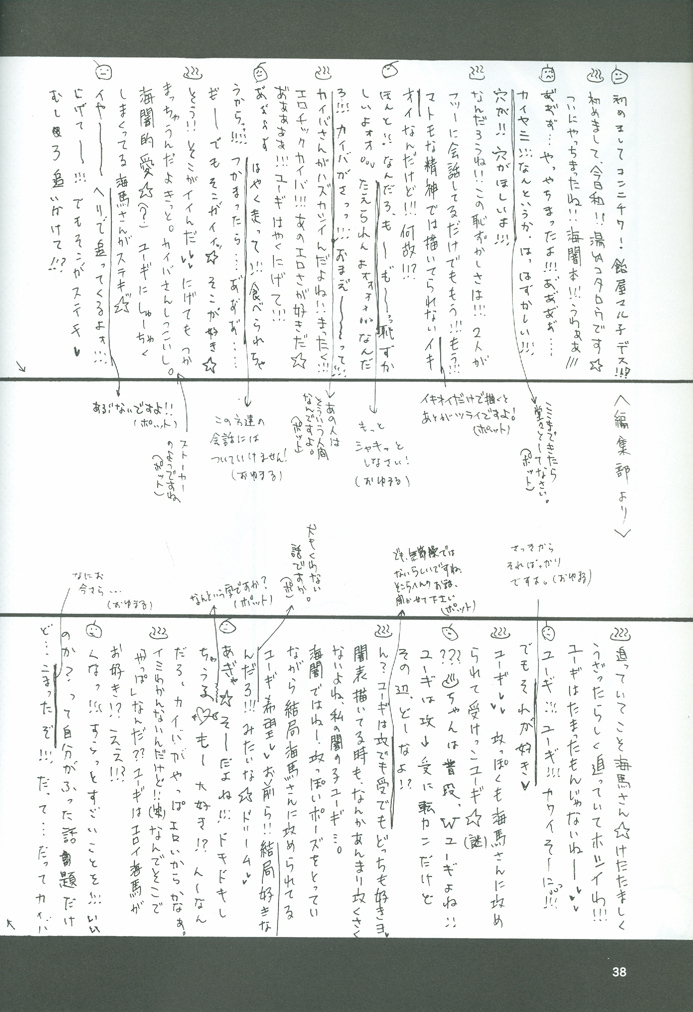 初めましてコンニチワ！飴屋マルチデス!!!?
初めまして、今日和!!湯山コタロウです☆
ついにやっちまったね!!海闇本!!うわぁぁ!!!
あ゛ぁ゛ぁ゛…やっちまったよ!!!あ゛ぁ゛ぁ゛ぁ゛…
カイヤミ!!!なんというか、はっはずかしい!!!
穴が!!穴がほしいよ!!!
なんだろうね!!この恥ずかしさは!!!2人が
フツーに会話してるだけでももう!!!もう!!!
マトモな精神では描いてられないイキ
オイなんだけど!!!何故!!!?
ほんと!!なんだろ、も〜も゛〜っ恥ずか
しいよォォ。。。たえられんよォォォ!!!なんだ
ろ!!!カイバがさっっ!!!おまえ〜〜って!!!
カイバさんがハズカシイんだよね!!まったく!!!
エロチックカイバ!!!あのエロさが好きだ☆
あ゛ぁぁぁぁ!!!ユーギはやくにげて!!!
あ゛ぁぁぁ はやく走って!!食べられちゃ
うから…!!!つかまったら…あ゛ぁ゛ぁ゛…
ぎ〜でもそこがイイ☆そこが好き☆
そう!!そこがイイんだ♥♥にげてもつか
まっちゃうんだよきっと。カイバさんしつこいし。
海闇的愛☆(?)ユーギにしゅーちゃく
しまくってる海馬さんがステキ☆
イヤ〜〜ヘリで追ってくるよォ!!!
にげて〜!!!でもそこがステキ♥
むしろ追いかけて!!?
〈編集部より〉
ここまできたら
堂々としてなさい。
(ポット)
イキオイだけで描くと
あとがツライですよ!
(ポット)
もっと
シャキっと
しなさい!
(おゆまる)
あの人は
そういう人間
なんですよ。
(ポット)
この方達の
会話には
ついていけません!
(おゆまる)
ストーカーの
ようですね。
(ポット)
あぶないですよ!!
(ポット)
さっきから
そればっかり
ですね。(おゆまる)
ないらしいですね。
そこらへんのお話、
聞かせて下さい
(ポット)
なんという字ですか?
(ポット)
なにお
今さら…
(おゆまる)
追っていてこそ海馬さん☆けたたましく
うざったらしく追っていてホシイわ!!!
ユーギはたまったもんじゃないね〜♥♥
ユーギ!!!ユーギ!!!カワイそ〜に…!!!
でもそれが好き♥
ユーギ♥♥攻っぽくも海馬さんに攻め
られて受けっこユーギ☆(謎)
???♨ちゃんは普段、Wユーギよね!!
ユーギは攻→受に転カンだけど
その辺、ど〜なよ!?
ん?ユーギは攻でも受でもどっちも好きヨ。
闇表描いてる時も、なんかあんまり攻くさく
ないよね、私の闇の子ユーギ…。
海闇ではね〜攻っぽいポーズをとってい
ながら結局海馬さんに攻められてる
ユーギ希望♥お前ら!!結局好きな
んだろ!!みたいな☆ドリーム♥
あぎゃ☆そ〜だよね!!ドキドキし
ちゃうる も〜大好き!?ん〜なん
だろ、カイバがやっぱエロいからかなぁ。
イミわかんないんだけど!!(笑)なんでそこで
"やっぱ"なんだ??ユーギはエロイ海馬が
お好き!?ええ!!?
くなっ!!!すらっとすごいことを!!!いい
のか?って自分がふった話題だけ
ど…こまったぞ!!!だって…だってカイバ
38